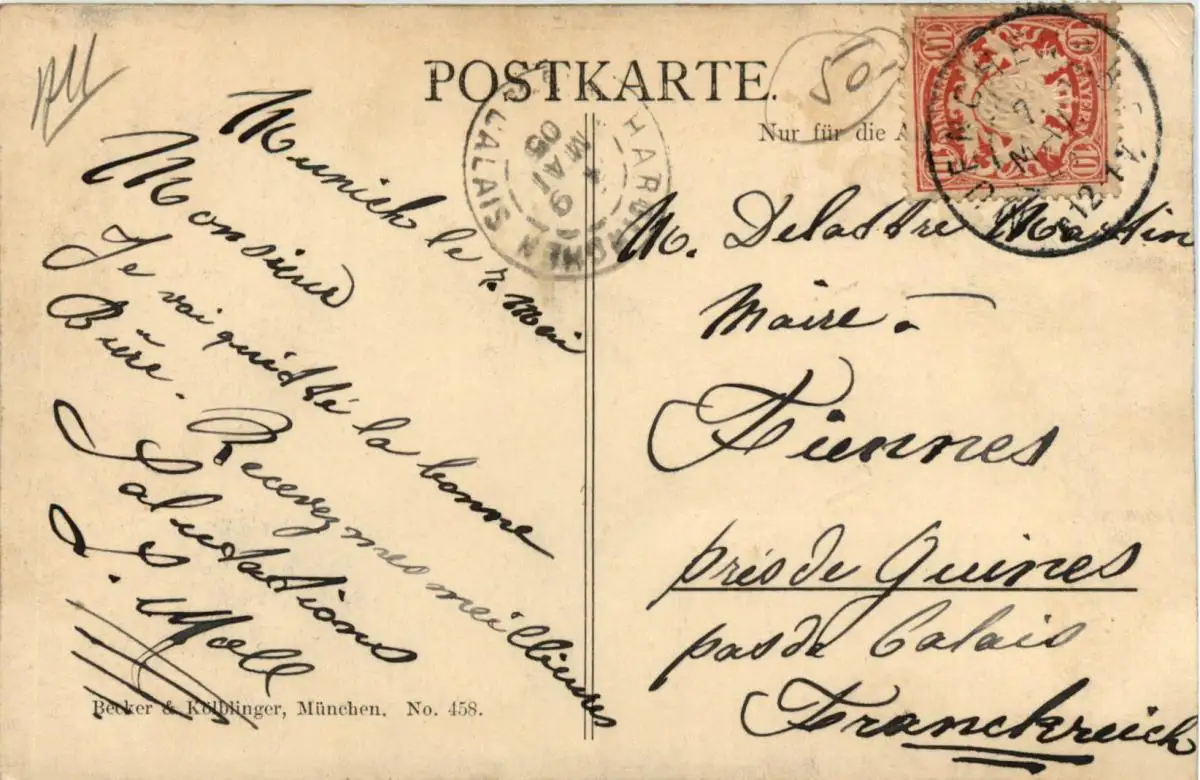 POSTKARTE.
50-
Nur für die A
HARDINGHEN
9 MAI 05
MÜNCHEN
7 MAI
12-1
10
BAYERN
10
Munich le 7 Mai
Monsieur
Je vai quitté la bonne
Bière. Recevez mes meillieures
Salutations
J. Moll
M. Delattre Martin
Maire -
Fiennes
près de Guines
pas de Calais
Franckreich
Becker & Kölblinger, München. No. 458.